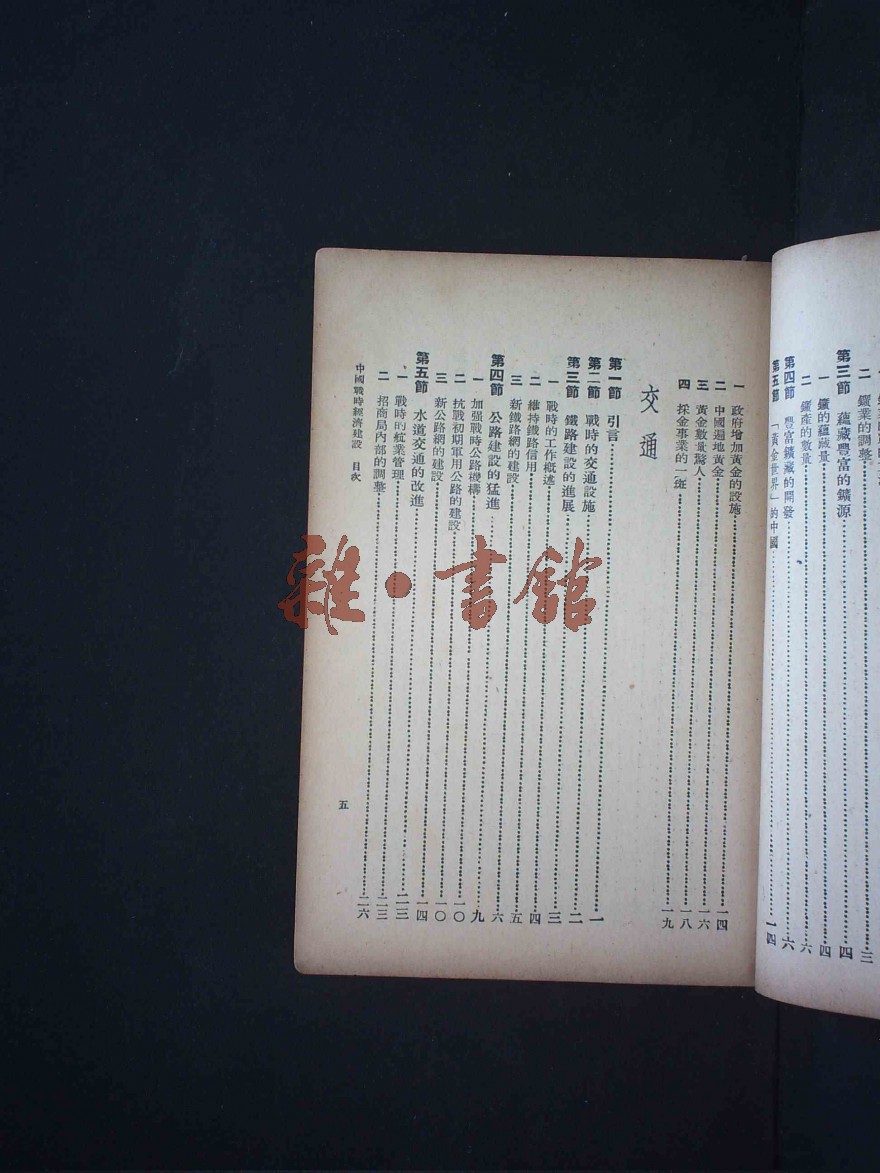 二 鑛業的調整……三
第三節 蘊藏豐富的鑛源……四
一 鑛的蘊藏量……四
二 鑛產的數量……六
第四節 豐富鑛藏的開發……六
第五節 「黃金世界」的中國……一四
一 政府增加黃金的設施……一四
二 中國遍地黃金……一六
三 黃金數量驚人……一八
四 採金事業的一斑……一九
交通
第一節 引言……一
第二節 戰時的交通設施……二
第三節 鐵路建設的進展……三
一 戰時的工作概述……四
二 維持鐵路信用……五
三 新鐵路網的建設……六
第四節 公路建設的猛進……九
一 加强戰時公路機構……一〇
二 抗戰初期軍用公路的建設……一〇
三 新公路網的建設……一四
第五節 水道交通的改進……二三
一 戰時的航業管理……二三
二 招商局內部的調整……二六
中國戰時經濟建設 目次
五
雜·書館